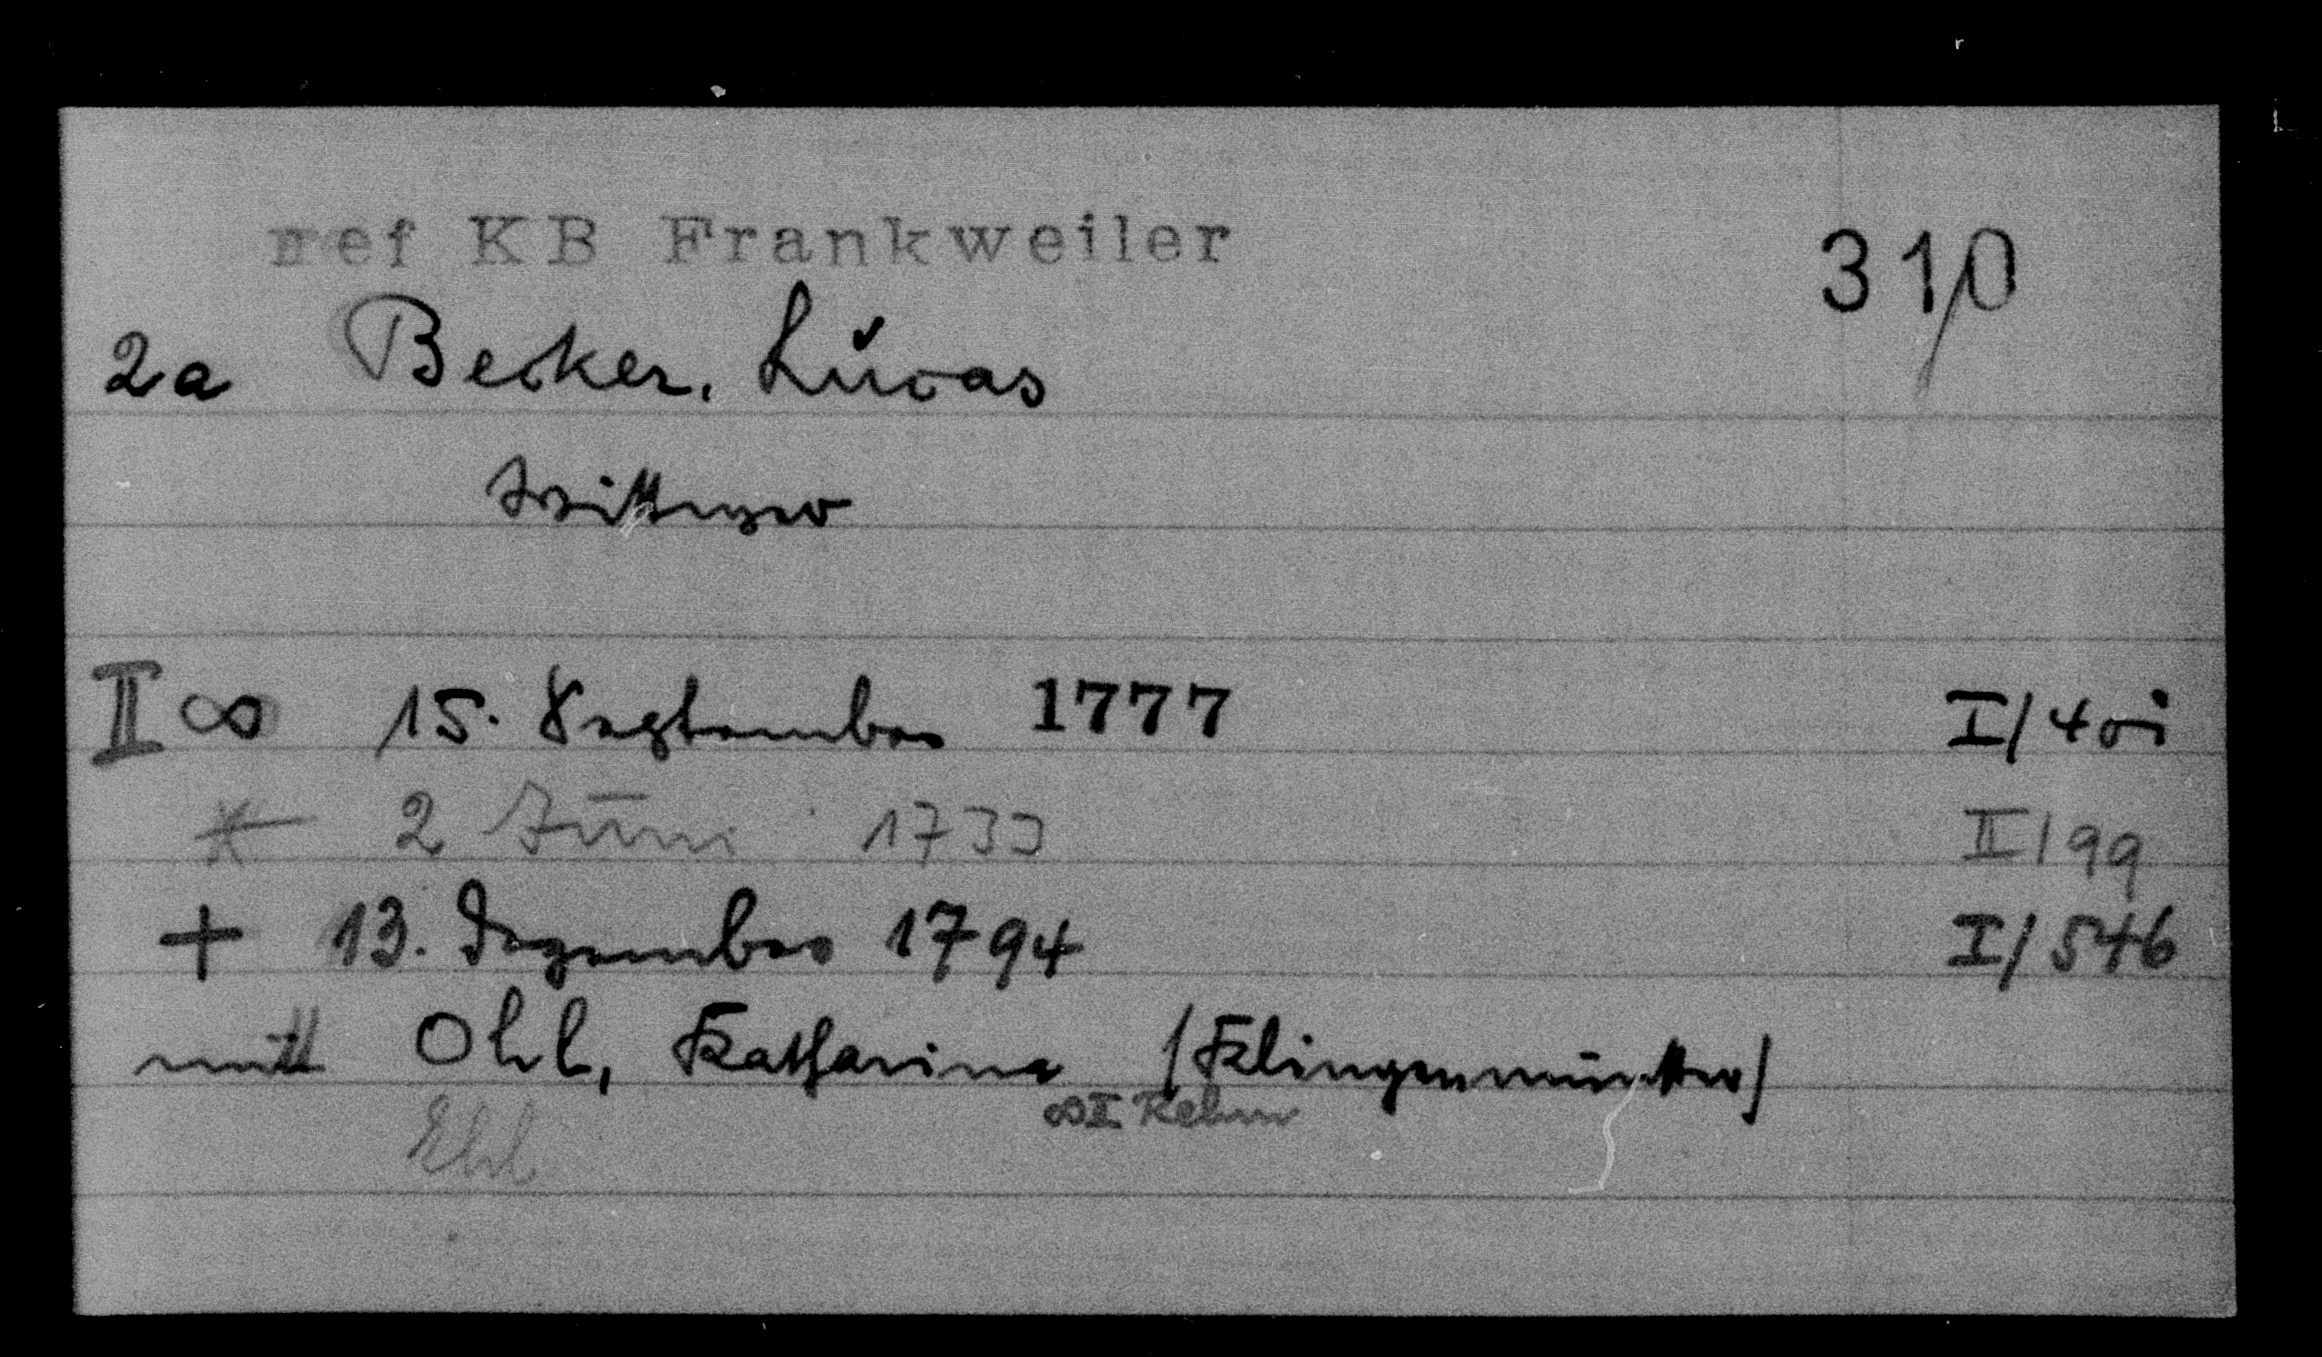 ref KB Frankweiler 310
2a Becker, Lucas
Wittwer
II ∞ 15. September 1777 I/401
* 2 Juni 1733 II/99
+ 13. Dezember 1794 I/546
mit Ohl, Katharina (Klingenmünster)
Ehl ∞I Rehm